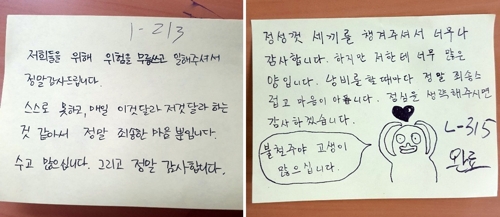 1-213
저희들을 위해 위험을 무릅쓰고 일해주셔서
정말감사드립니다.
스스로 못하고, 매일 이것달라 저것달라 하는
것 같아서 정말 죄송한 마음 뿐입니다.
수고 많으십니다. 그리고 정말 감사합니다.
정성껏 세끼를 챙겨주셔서 너무나
감사합니다. 하지만 저한테 너무 많은
양입니다. 낭비를 할때마다 정말 죄송스
럽고 마음이 아픕니다. 점심은 생략해주시면
감사하겠습니다.
불철주야 고생이
많으십니다.
L-315
완료